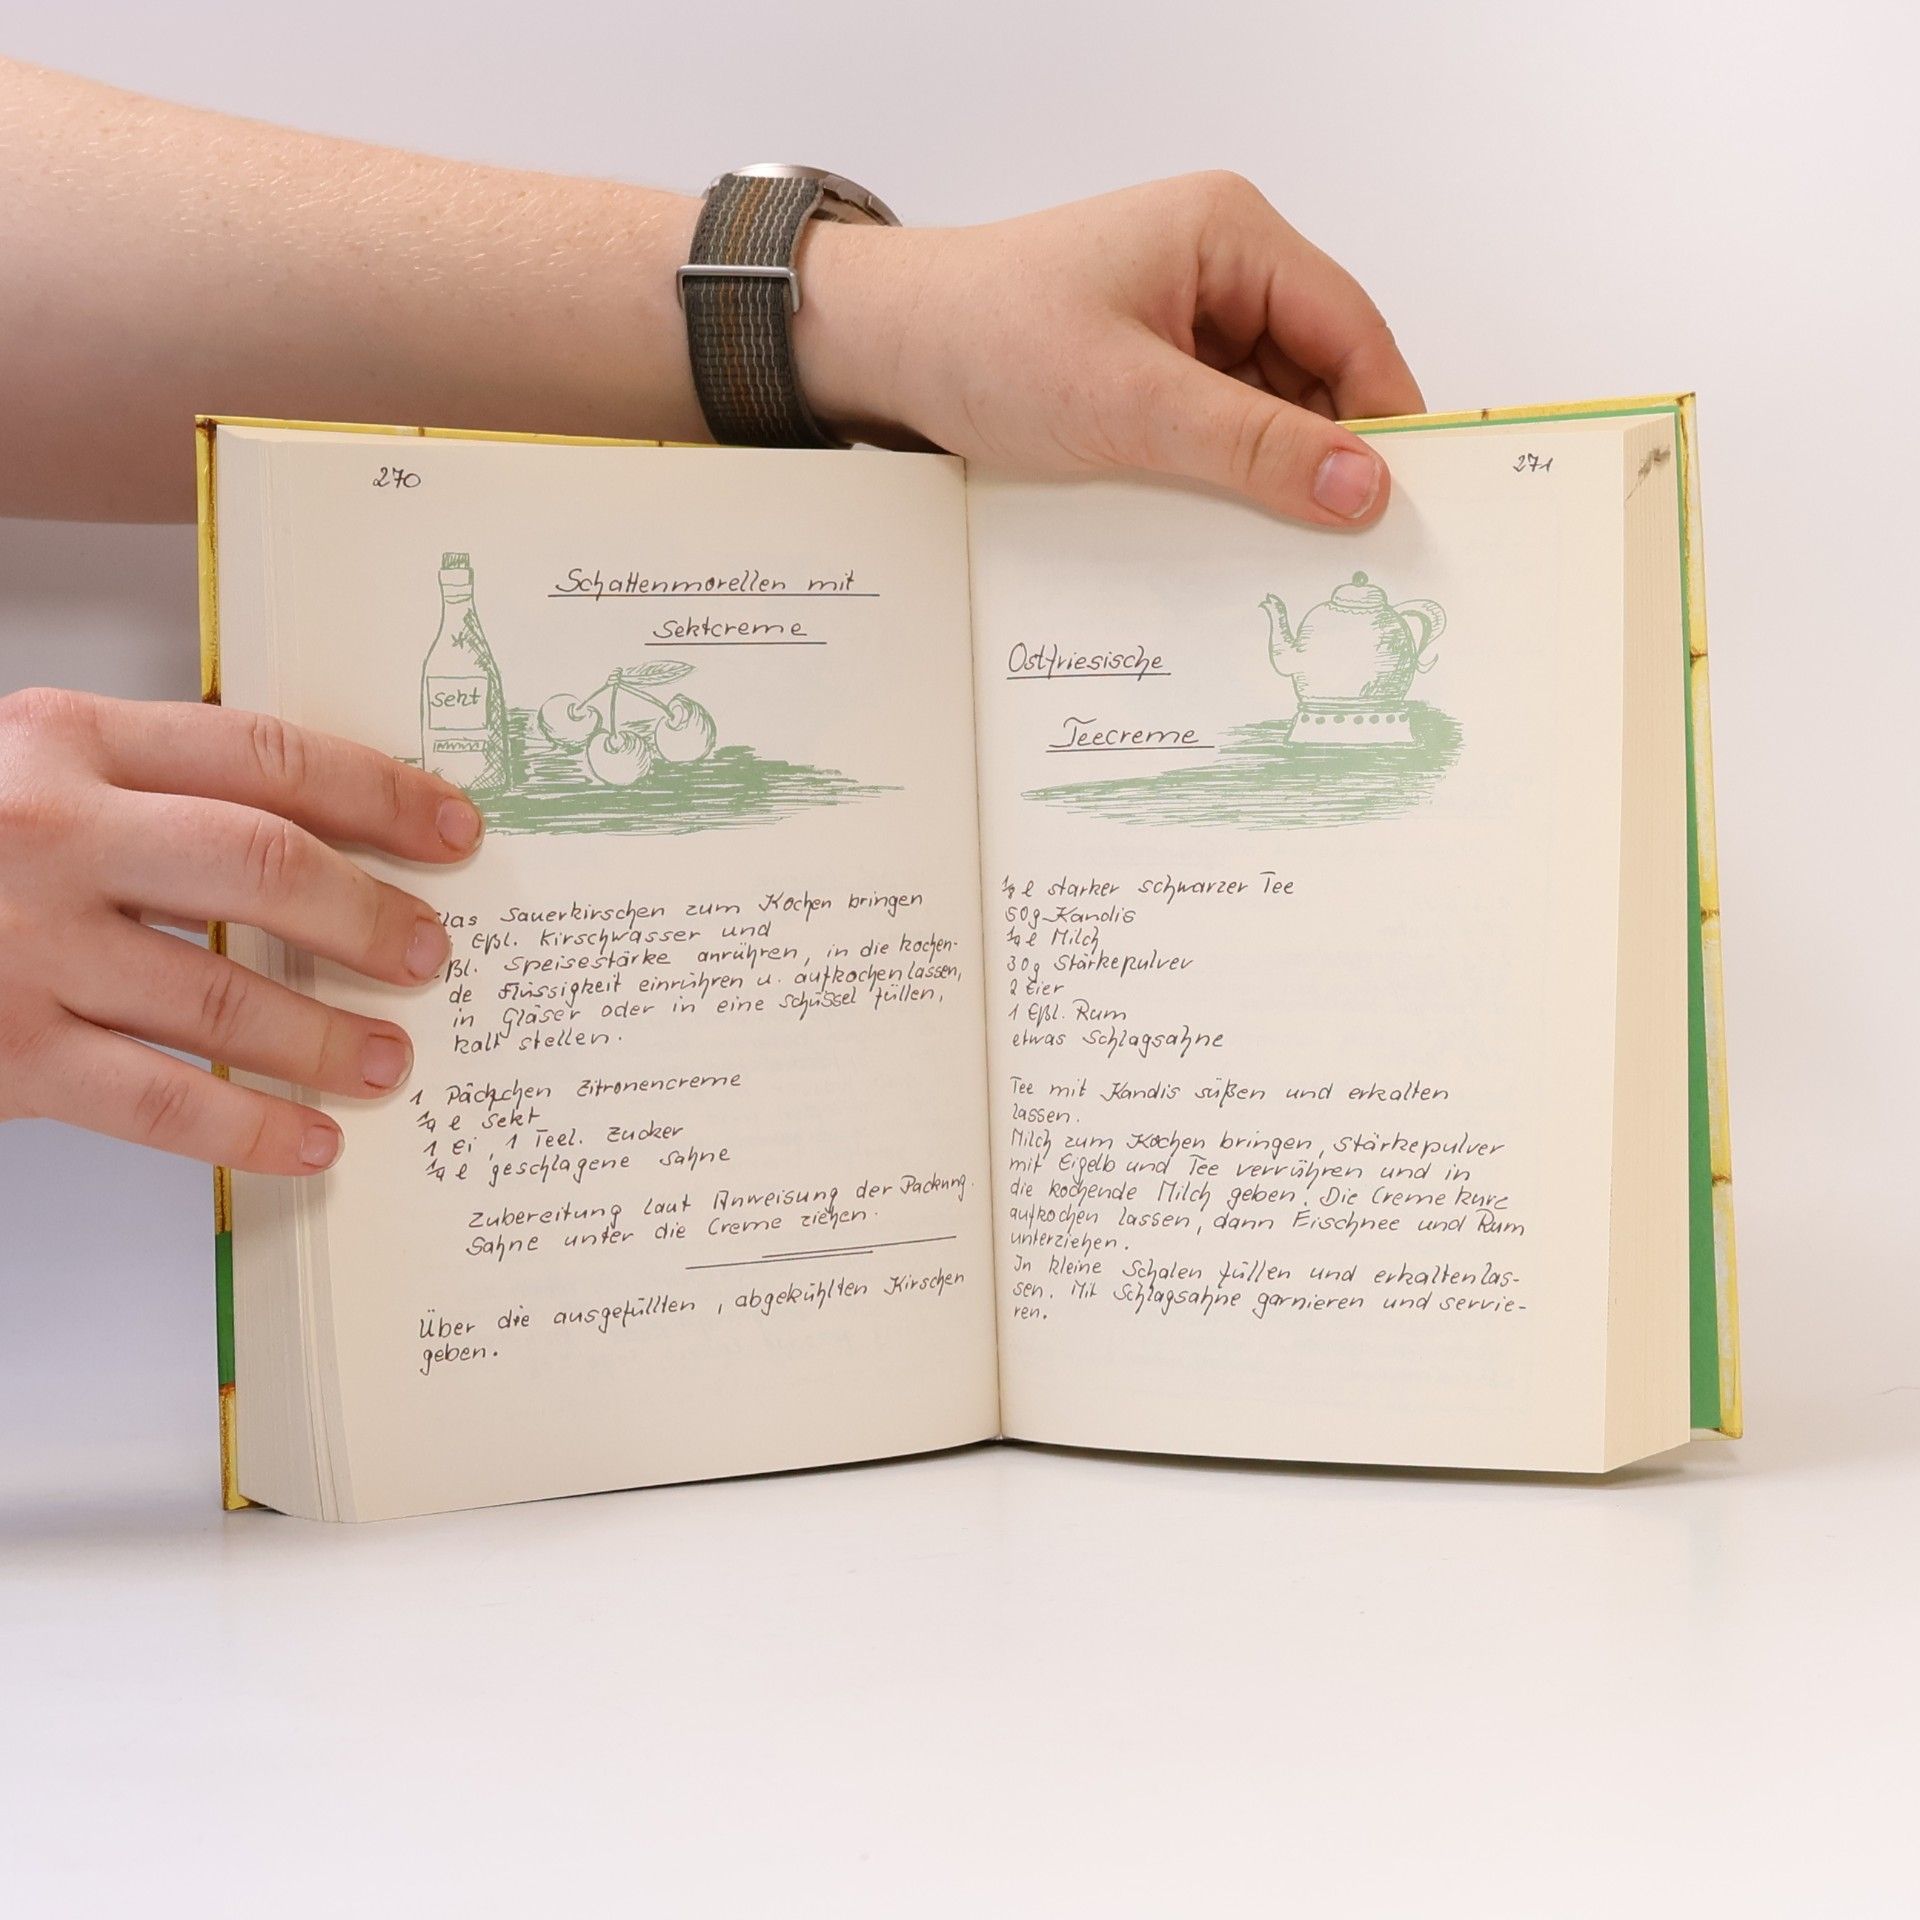 270
Schattenmorellen mit
Sektcreme
Sekt
las Sauerkirschen zum Kochen bringen
Eßl. Kirschwasser und
ßl. Speisestärke anrühren, in die kochen-
de Flüssigkeit einrühren u. aufkochen lassen,
in Gläser oder in eine Schüssel füllen,
kalt stellen.
1 Päckchen Zitronencreme
1/4 l Sekt
1 Ei, 1 Teel. Zucker
1/4 l geschlagene Sahne
Zubereitung laut Anweisung der Packung.
Sahne unter die Creme ziehen.
Über die ausgefüllten, abgekühlten Kirschen
geben.
271
Ostfriesische
Teecreme
1/8 l starker schwarzer Tee
50g Kandis
1/4 l Milch
30g Stärkepulver
2 Eier
1 Eßl. Rum
etwas Schlagsahne
Tee mit Kandis süßen und erkalten
lassen.
Milch zum Kochen bringen, Stärkepulver
mit Eigelb und Tee verrühren und in
die kochende Milch geben. Die Creme kurz
aufkochen lassen, dann Eischnee und Rum
unterziehen.
In kleine Schalen füllen und erkalten las-
sen. Mit Schlagsahne garnieren und servie-
ren.